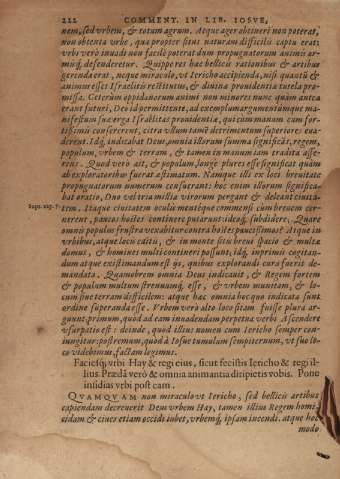 222 COMMENT. IN LIB. IOSVE,
nem, sed vrbem, & totum agrum. Atque ager obtineri non poterat,
non obtenta vrbe, quæ propter situs naturam difficilis captu erat:
vrbi verò inuadi non facilè poterat dum propugnatorum animi ar-
mísq; defenderetur. Quippe res hæc bellicis rationibus & artibus
gerenda erat, neque miraculo, vt Iericho accipienda, nisi quatenus &
animus esset Israëlitis restitutus, & diuina prouidentia tutela pro-
missa. Ceterùm oppidanorum animi non minores nunc quàm antea
erant futuri, Dei id permittente, ad exemplum argumentumque ma-
nifestum suæ erga Israëlitas prouidentiæ, qui cum manum cum for-
tissimis consererent, citra vllum tamē detrimentum superiores eua-
derent. Idq; indicabat Deus, omnia illorum summa significās, regem,
populum, vrbem & terram, & tamen in manum iam tradita asse-
rens. Quod verò ait, & populum, longè plures esse significat quàm
ab exploratoribus fuerat æstimatum. Namque illi ex loci breuitate
propugnatorum numerum censuerant: hoc enim illorum significa-
bat oratio, Duo vel tria millia virorum pergant & deleant ciuita-
Supr. eap. 7. tem. Itaque ciuitatem oculis montisque commensi cùm breuem cer-
nerent, paucos hostes continere putarunt: ideóq; subdidere, Quare
omnis populus frustra vexabitur contra hostes paucissimos? Atque in
vrbibus, atque locis editis, & in monte situ breui spacio & multæ
domus, & homines multi contineri possunt, idq; inprimis cogitan-
dum atque existimandum est ijs, quibus explorandi cura fuerit de-
mandata. Quamobrem omnia Deus indicauit, & Regem fortem
& populum multum strenuumq; esse, & vrbem munitam, & lo-
cum siue terram difficilem: atque hæc omnia hocquo indicata sunt
ordine superanda esse. Vrbem verò alto loco sitam fuisse plura ar-
guunt: primùm, quòd ad eam inuadendam perpetuò verbi Ascendere
vsurpatio est: deinde, quòd illius nomen cum Iericho semper con-
iungitur: postremum, quòd à Iosue tumulum sempiternum, vt suo lo-
co videbimus, factam legimus.
Faciésq; vrbi Hay & regi eius, sicut fecistis Iericho & regi il-
lius. Prædā verò & omnia animantia diripietis vobis. Pone
insidias vrbi post eam.
QVAMQVAM non miraculo vt Iericho, sed bellicis artibus
capiendam decreuerit Deus vrbem Hay, tamen illius Regem homi-
cidam & ciues etiam occidi iubet, vrbemq; ipsam incendi. atque hoc
modo